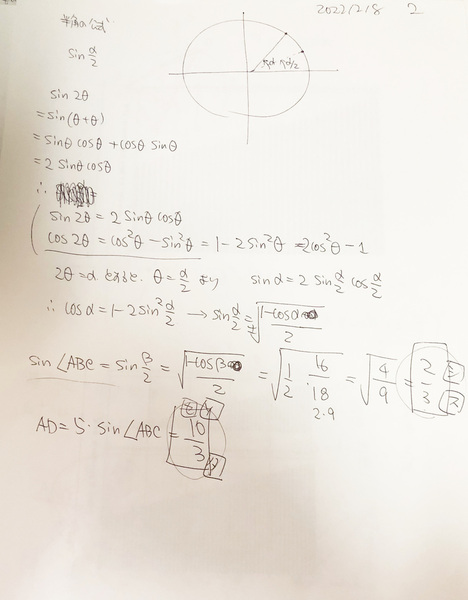 2022/2/8 2
半角の公式
sin α/2
sin 2θ
= sin(θ+θ)
= sinθ cosθ + cosθ sinθ
= 2 sinθ cosθ
∴
sin 2θ = 2 sinθ cosθ
cos 2θ = cos²θ − sin²θ = 1 − 2sin²θ = 2cos²θ − 1
2θ = α とすると、θ = α/2 より sin α = 2 sin α/2 cos α/2
∴ cos α = 1 − 2sin² α/2 → sin α/2 = ±√((1−cos α)/2)
sin∠ABC = sin β/2 = √((1−cos β)/2) = √(1/2 · 16/18) = √(4/9) = 2/3
2·9
AD = 5·sin∠ABC = 10/3